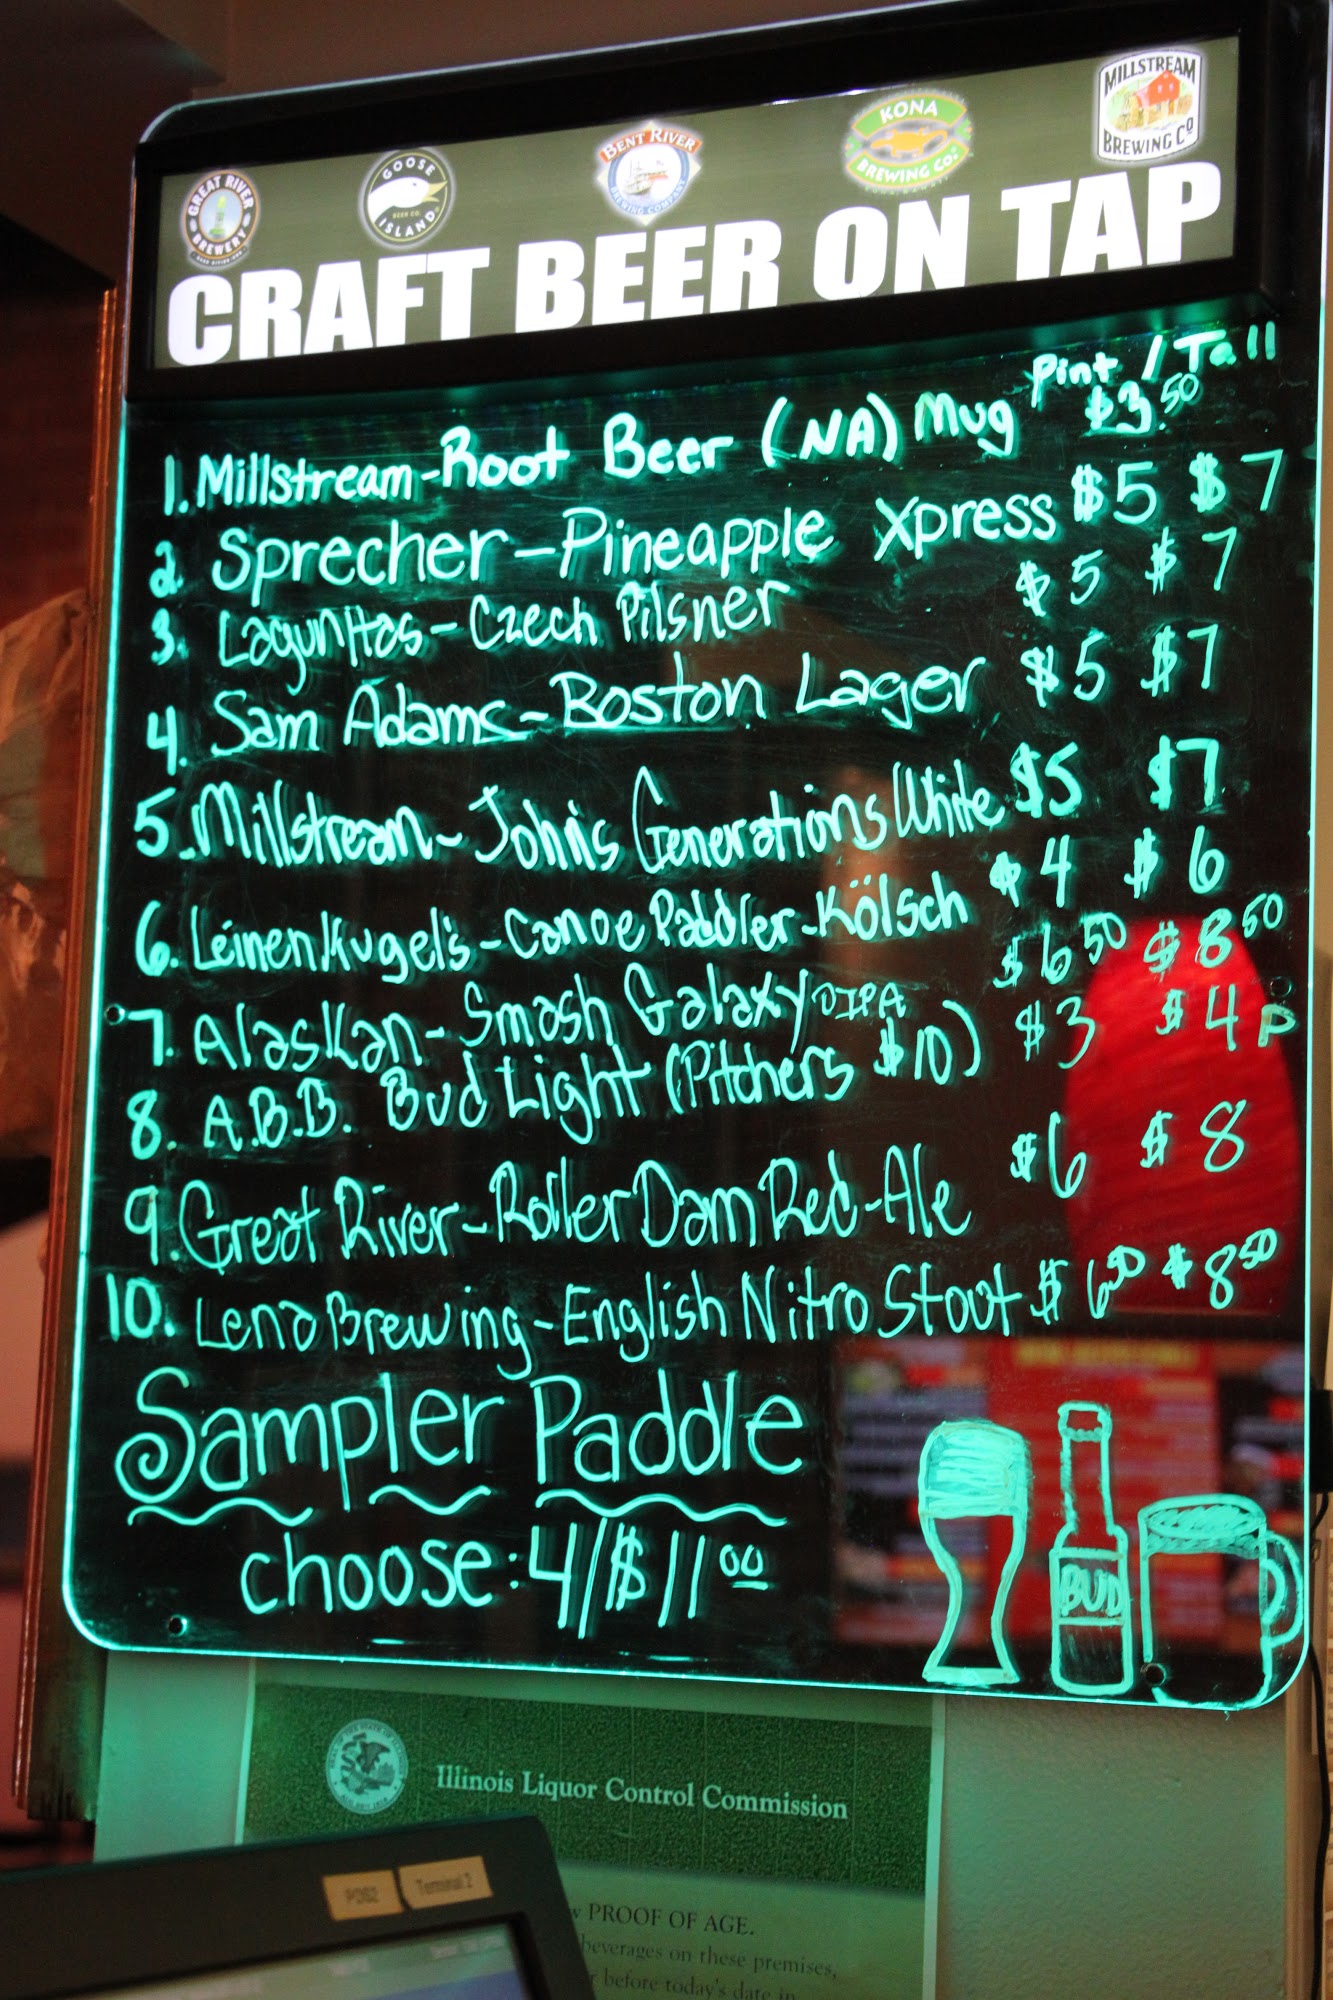 GREAT RIVER BREWERY
GOOSE ISLAND BEER CO.
BENT RIVER BREWING COMPANY
KONA BREWING CO.
MILLSTREAM BREWING Co
CRAFT BEER ON TAP
Pint / Tall
1. Millstream-Root Beer (NA) Mug $3.50
2 Sprecher-Pineapple Xpress $5 $7
3. Lagunitas-Czech Pilsner $5 $7
4. Sam Adams-Boston Lager $5 $7
5. Millstream-John's Generations White $5 $7
6. Leinenkugel's-Canoe Paddler-Kölsch $4 $6
7. Alaskan-Smash Galaxy DIPA $6 50 $8 50
8. A.B.B. Bud Light (Pitchers $10) $3 $4 P
9. Great River-Roller Dam Red-Ale $6 $8
10. Leno Brewing-English Nitro Stout $6 50 $8 50
Sampler Paddle
choose: 4/$11 00
BUD
Illinois Liquor Control Commission
PROOF OF AGE.
beverages on these premises,
before today's date in
POS2 Terminal 2